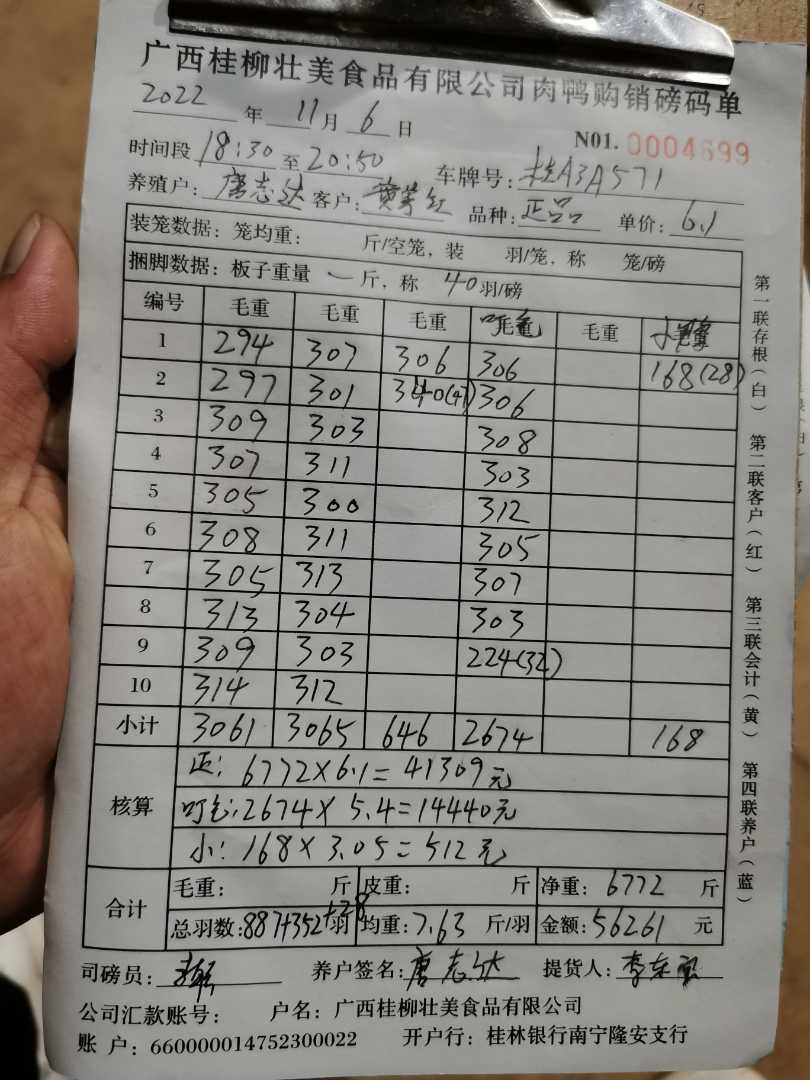 广西桂柳壮美食品有限公司肉鸭购销磅码单
2022 年 11 月 6 日
N01. 0004699
时间段 18:30 至 20:50 车牌号: 桂A3A571
养殖户: 唐志达 客户: 红 品种: 正品 单价: 6.1
装笼数据: 笼均重: 斤/空笼, 装 羽/笼, 称 笼/磅
捆脚数据: 板子重量 斤, 称 40 羽/磅
编号 毛重 毛重 毛重 毛重 毛重 毛重
1 294 307 306 306 168(28)
2 297 301 340(47) 306
3 309 303 308
4 307 311 303
5 305 300 312
6 308 311 305
7 305 313 307
8 313 304 303
9 309 303 224(32)
10 314 312
小计 3061 3065 646 2674 168
核算
正: 6772×6.1=41309元
叮毛:2674×5.4=14440元
小: 168×3.05=512元
合计
毛重: 斤 皮重: 斤 净重: 6772 斤
总羽数: 887+352+28 羽 均重: 7.63 斤/羽 金额: 56261 元
司磅员: 养户签名: 唐志达 提货人: 李东
公司汇款账号: 户名: 广西桂柳壮美食品有限公司
账 户: 660000014752300022 开户行: 桂林银行南宁隆安支行
第一联存根(白) 第二联客户(红) 第三联会计(黄) 第四联养户(蓝)